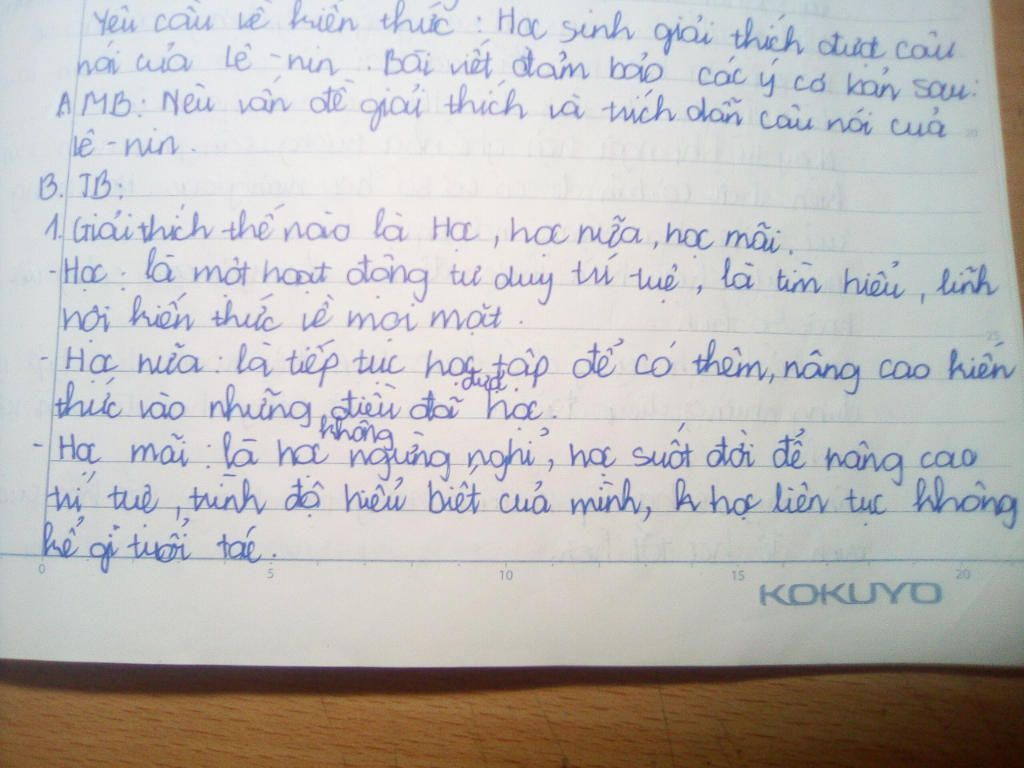 Yêu cầu về kiến thức : Học sinh giải thích được câu
nói của Lê-nin. Bài viết đảm bảo các ý cơ bản sau:
A. MB: Nêu vấn đề giải thích và trích dẫn câu nói của
Lê-nin.
B. TB:
1. Giải thích thế nào là Học, học nữa, học mãi.
- Học : là một hoạt động tư duy trí tuệ, là tìm hiểu, lĩnh
hội kiến thức về mọi mặt.
- Học nữa : là tiếp tục học tập để có thêm, nâng cao kiến
thức vào những điều đã được học.
- Học mãi : là học không ngừng nghỉ, học suốt đời để nâng cao
trí tuệ, trình độ hiểu biết của mình, k học liên tục không
kể gì tuổi tác.
0 5 10 15 20
KOKUYO
25